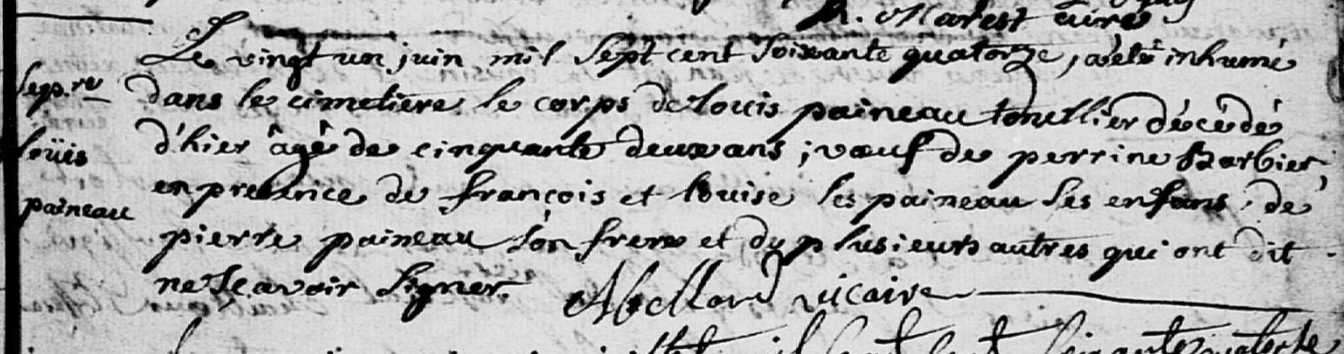 R. Marest Curé
Le vingt un juin mil Sept cent Soixante quatorze, a été inhumé
Sep.re dans le cimetiere le corps de louis paineau tonellier décédé
loüis d'hier âgé de cinquante deux ans ; voeuf de perrine Barbier,
en presence de françois et louise les paineau ses enfans, de
paineau pierre paineau son frere et de plusieurs autres qui ont dit
ne Sçavoir Signer. Abellard vicaire